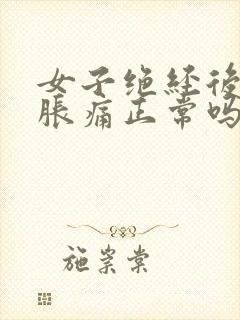 女子绝经後
胀痛正常吗
施崇棠